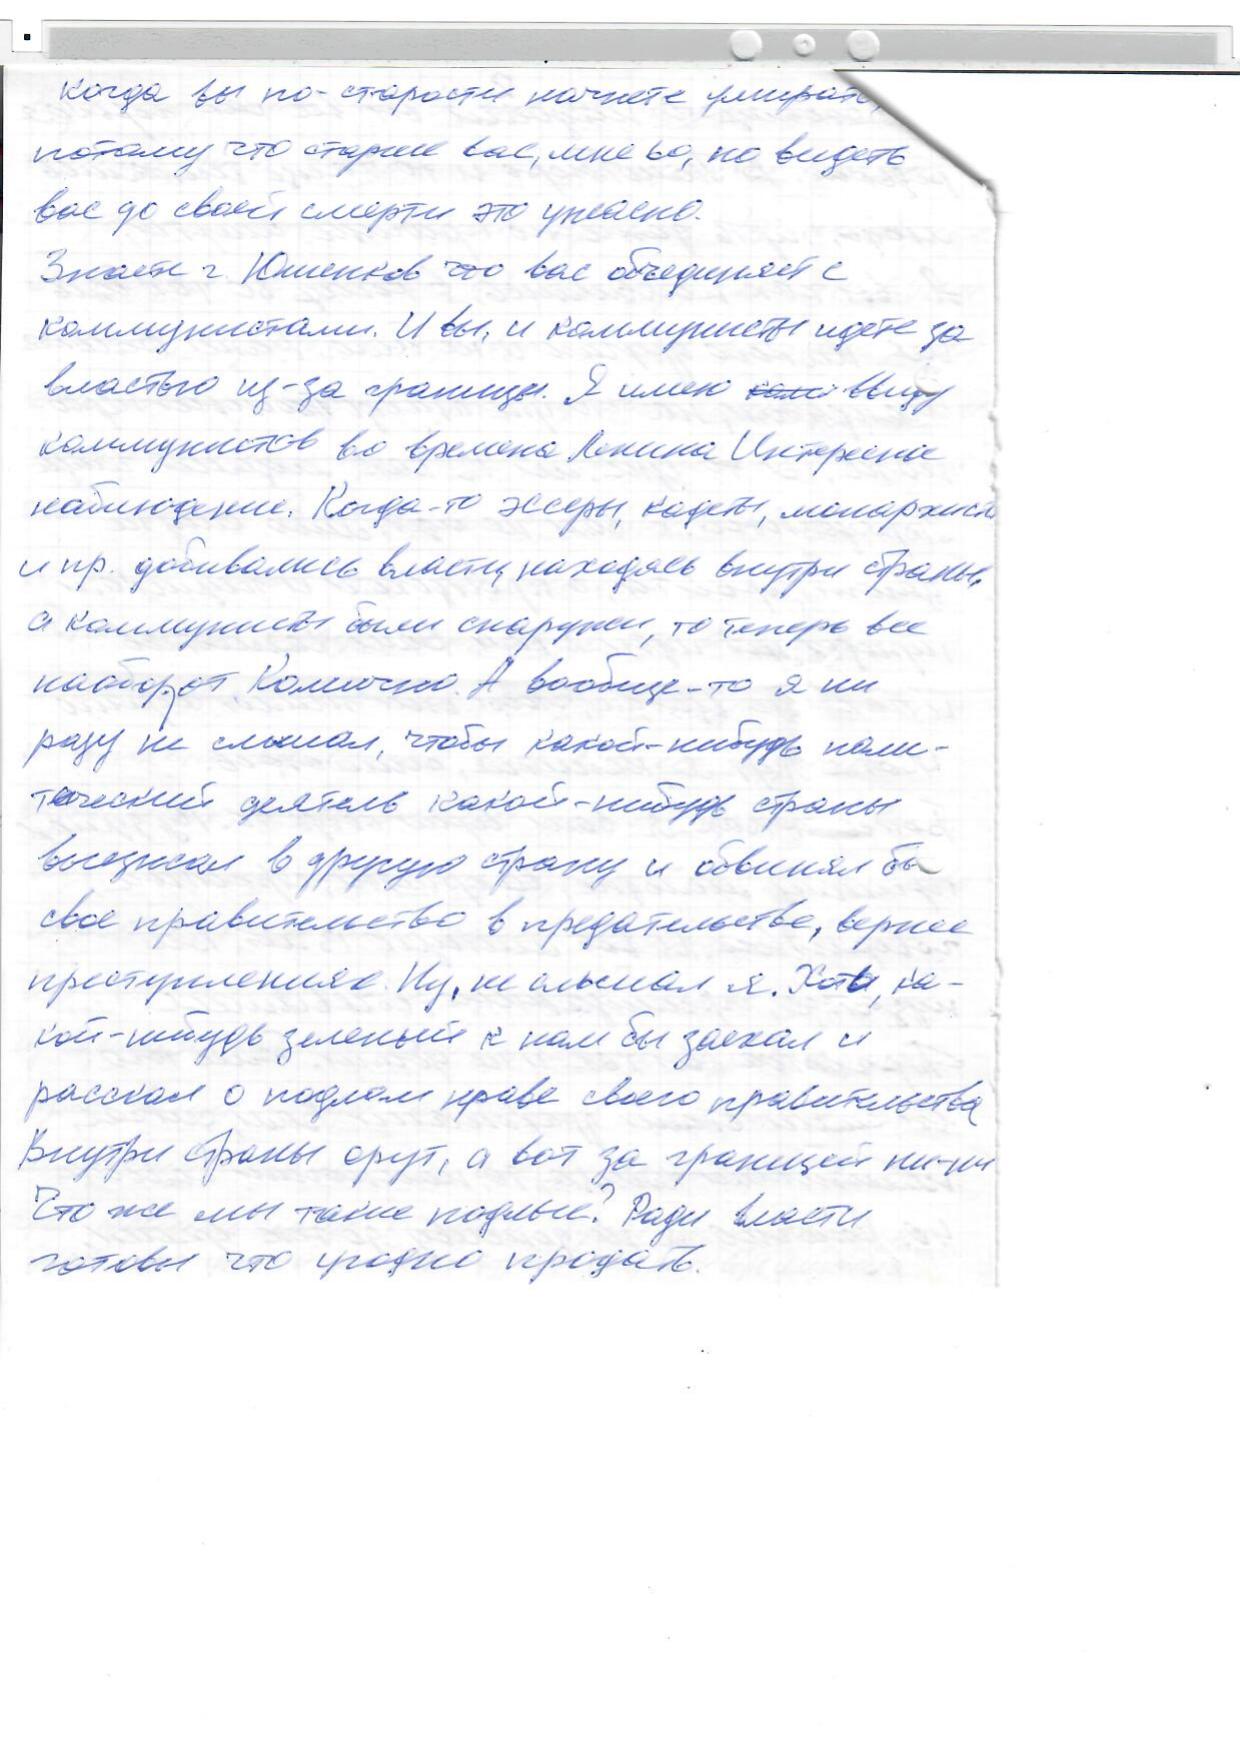 когда вы по-старости начнете умирать,
потому что старше вас, мне 60, но видеть
вас до своей смерти это ужасно.
Знаете г. Юшенков что вас объединяет с
коммунистами. И вы, и коммунисты идете за
властью из-за границы. Я имею ввиду
коммунистов во времена Ленина Интересное
наблюдение. Когда-то эссеры, кадеты, монархисты
и пр. добивались власти, находясь внутри страны,
а коммунисты были снаружи, то теперь все
наоборот. Комично. А вообще-то я ни
разу не слышал, чтобы какой-нибудь поли-
тический деятель какой-нибудь страны
выезжал в другую страну и обвинял бы
свое правительство в предательстве, вернее
преступлениях. Ну, не слышал я. Хоть, ка-
кой-нибудь зеленый к нам бы заехал и
расскал о подлом нраве своего правительства
Внутри страны орут, а вот за границей ни-ни
Что же мы такие подлые? Ради власти
готовы что угодно продать.